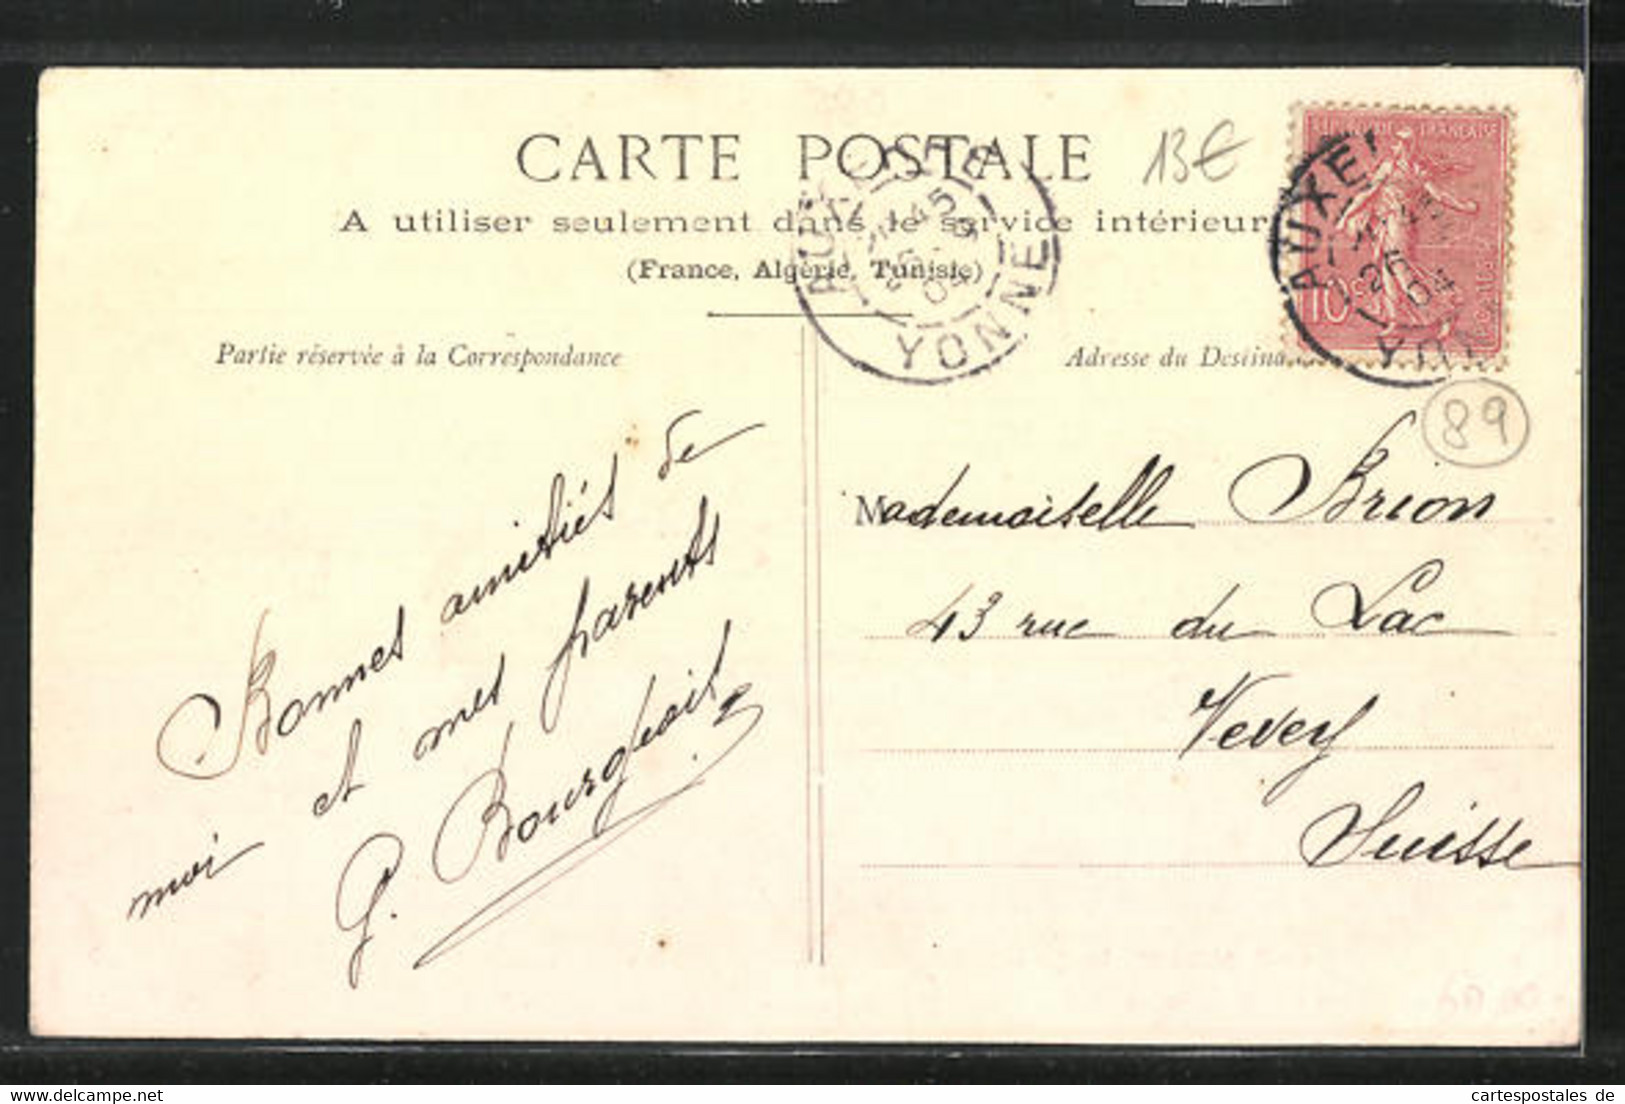 CARTE POSTALE
13€
A utiliser seulement dans le service intérieur
(France, Algérie, Tunisie)
Partie réservée à la Correspondance
Adresse du Destina
FRANÇAISE
10
AUXE
45
25
04
YONNE
AUXE
45
04
YONNE
89
Bonnes amitiés de
moi et mes parents
G. Bourgeois
Mademoiselle Brion
43 rue du Lac
Vevey
Suisse
cartespostales de